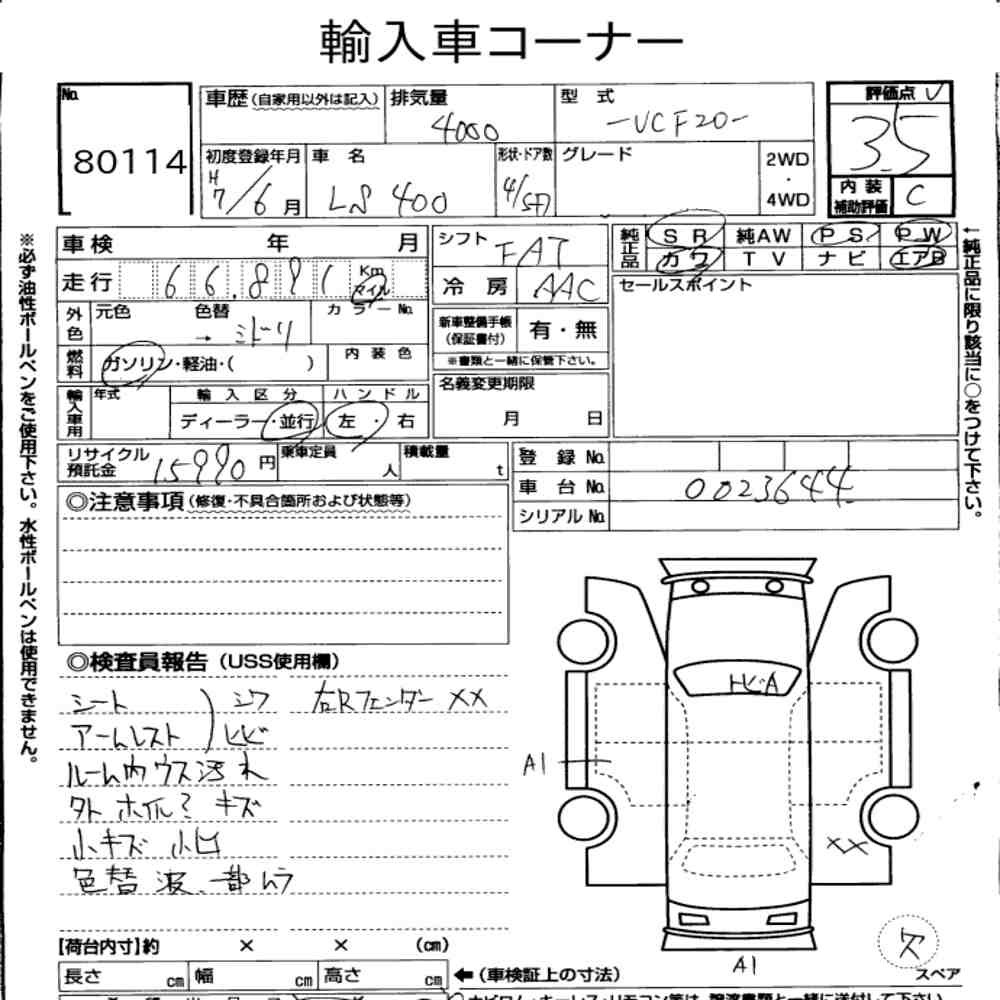 輸入車コーナー
No. 80114
車歴(自家用以外は記入) 排気量 4000 型式 -UCF20- 評価点 3.5
初度登録年月 H7/6月 車名 LS400 形状・ドア数 4/SD グレード 2WD・4WD 内装補助評価 C
車検 年 月 シフト FAT 純正品 SR 純AW PS PW
走行 66,891 Km マイル 冷房 AAC カワ TV ナビ エアB
外色 元色 色替 → ミドリ カラーNo. 新車整備手帳(保証書付) 有・無 セールスポイント
※書類と一緒に保管下さい。
燃料 ガソリン・軽油・( ) 内装色 名義変更期限 月 日
輸入車用 年式 輸入区分 ディーラー・並行 ハンドル 左・右
リサイクル預託金 15990円 乗車定員 人 積載量 t 登録No.
車台No. 0023644
シリアルNo.
◎注意事項(修復・不具合箇所および状態等)
※必ず油性ボールペンをご使用下さい。水性ボールペンは使用できません。
←純正品に限り該当に○をつけて下さい。
◎検査員報告(USS使用欄)
シート シワ 右Rフェンダー XX
アームレスト ヒビ
ルーム内ウス汚れ
外 ホイル? キズ
小キズ 小凹
色替 波、一部ムラ
トビA
A1
XX
A1
欠
スペア
【荷台内寸】約 × × (cm)
長さ cm 幅 cm 高さ cm ←(車検証上の寸法)